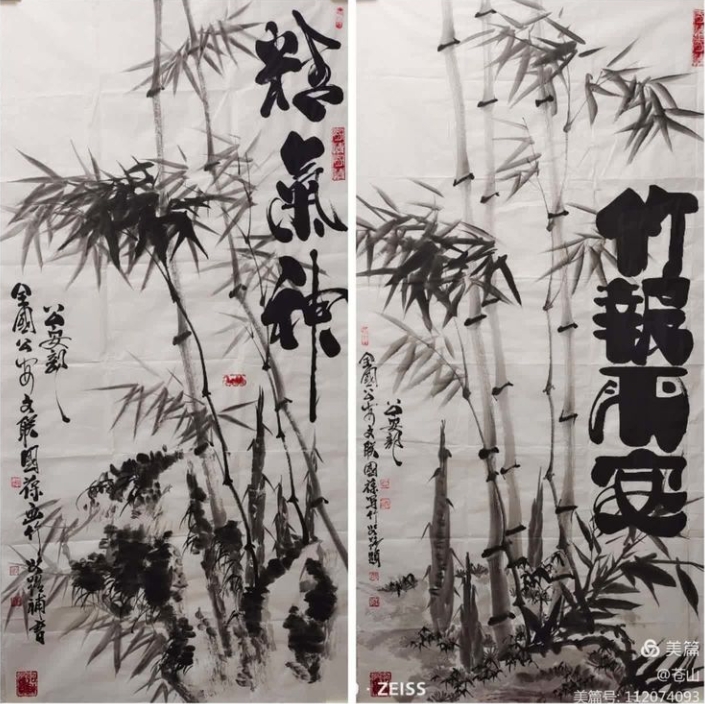 精氣神
公安部
全國公安文联國禄画竹
補書
竹報平安
公安部
全國公安文联國禄写竹
ZEISS
美篇
@苍山
美篇号: 112074093